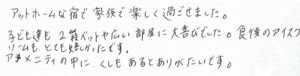 アットホームな宿で家族で楽しく過ごせました。
子ども達も2段ベットや広い部屋に大喜びでした。食後のアイスク
リームも、とても嬉しかったです。
アメニティの中に、くしもあるとありがたいです。